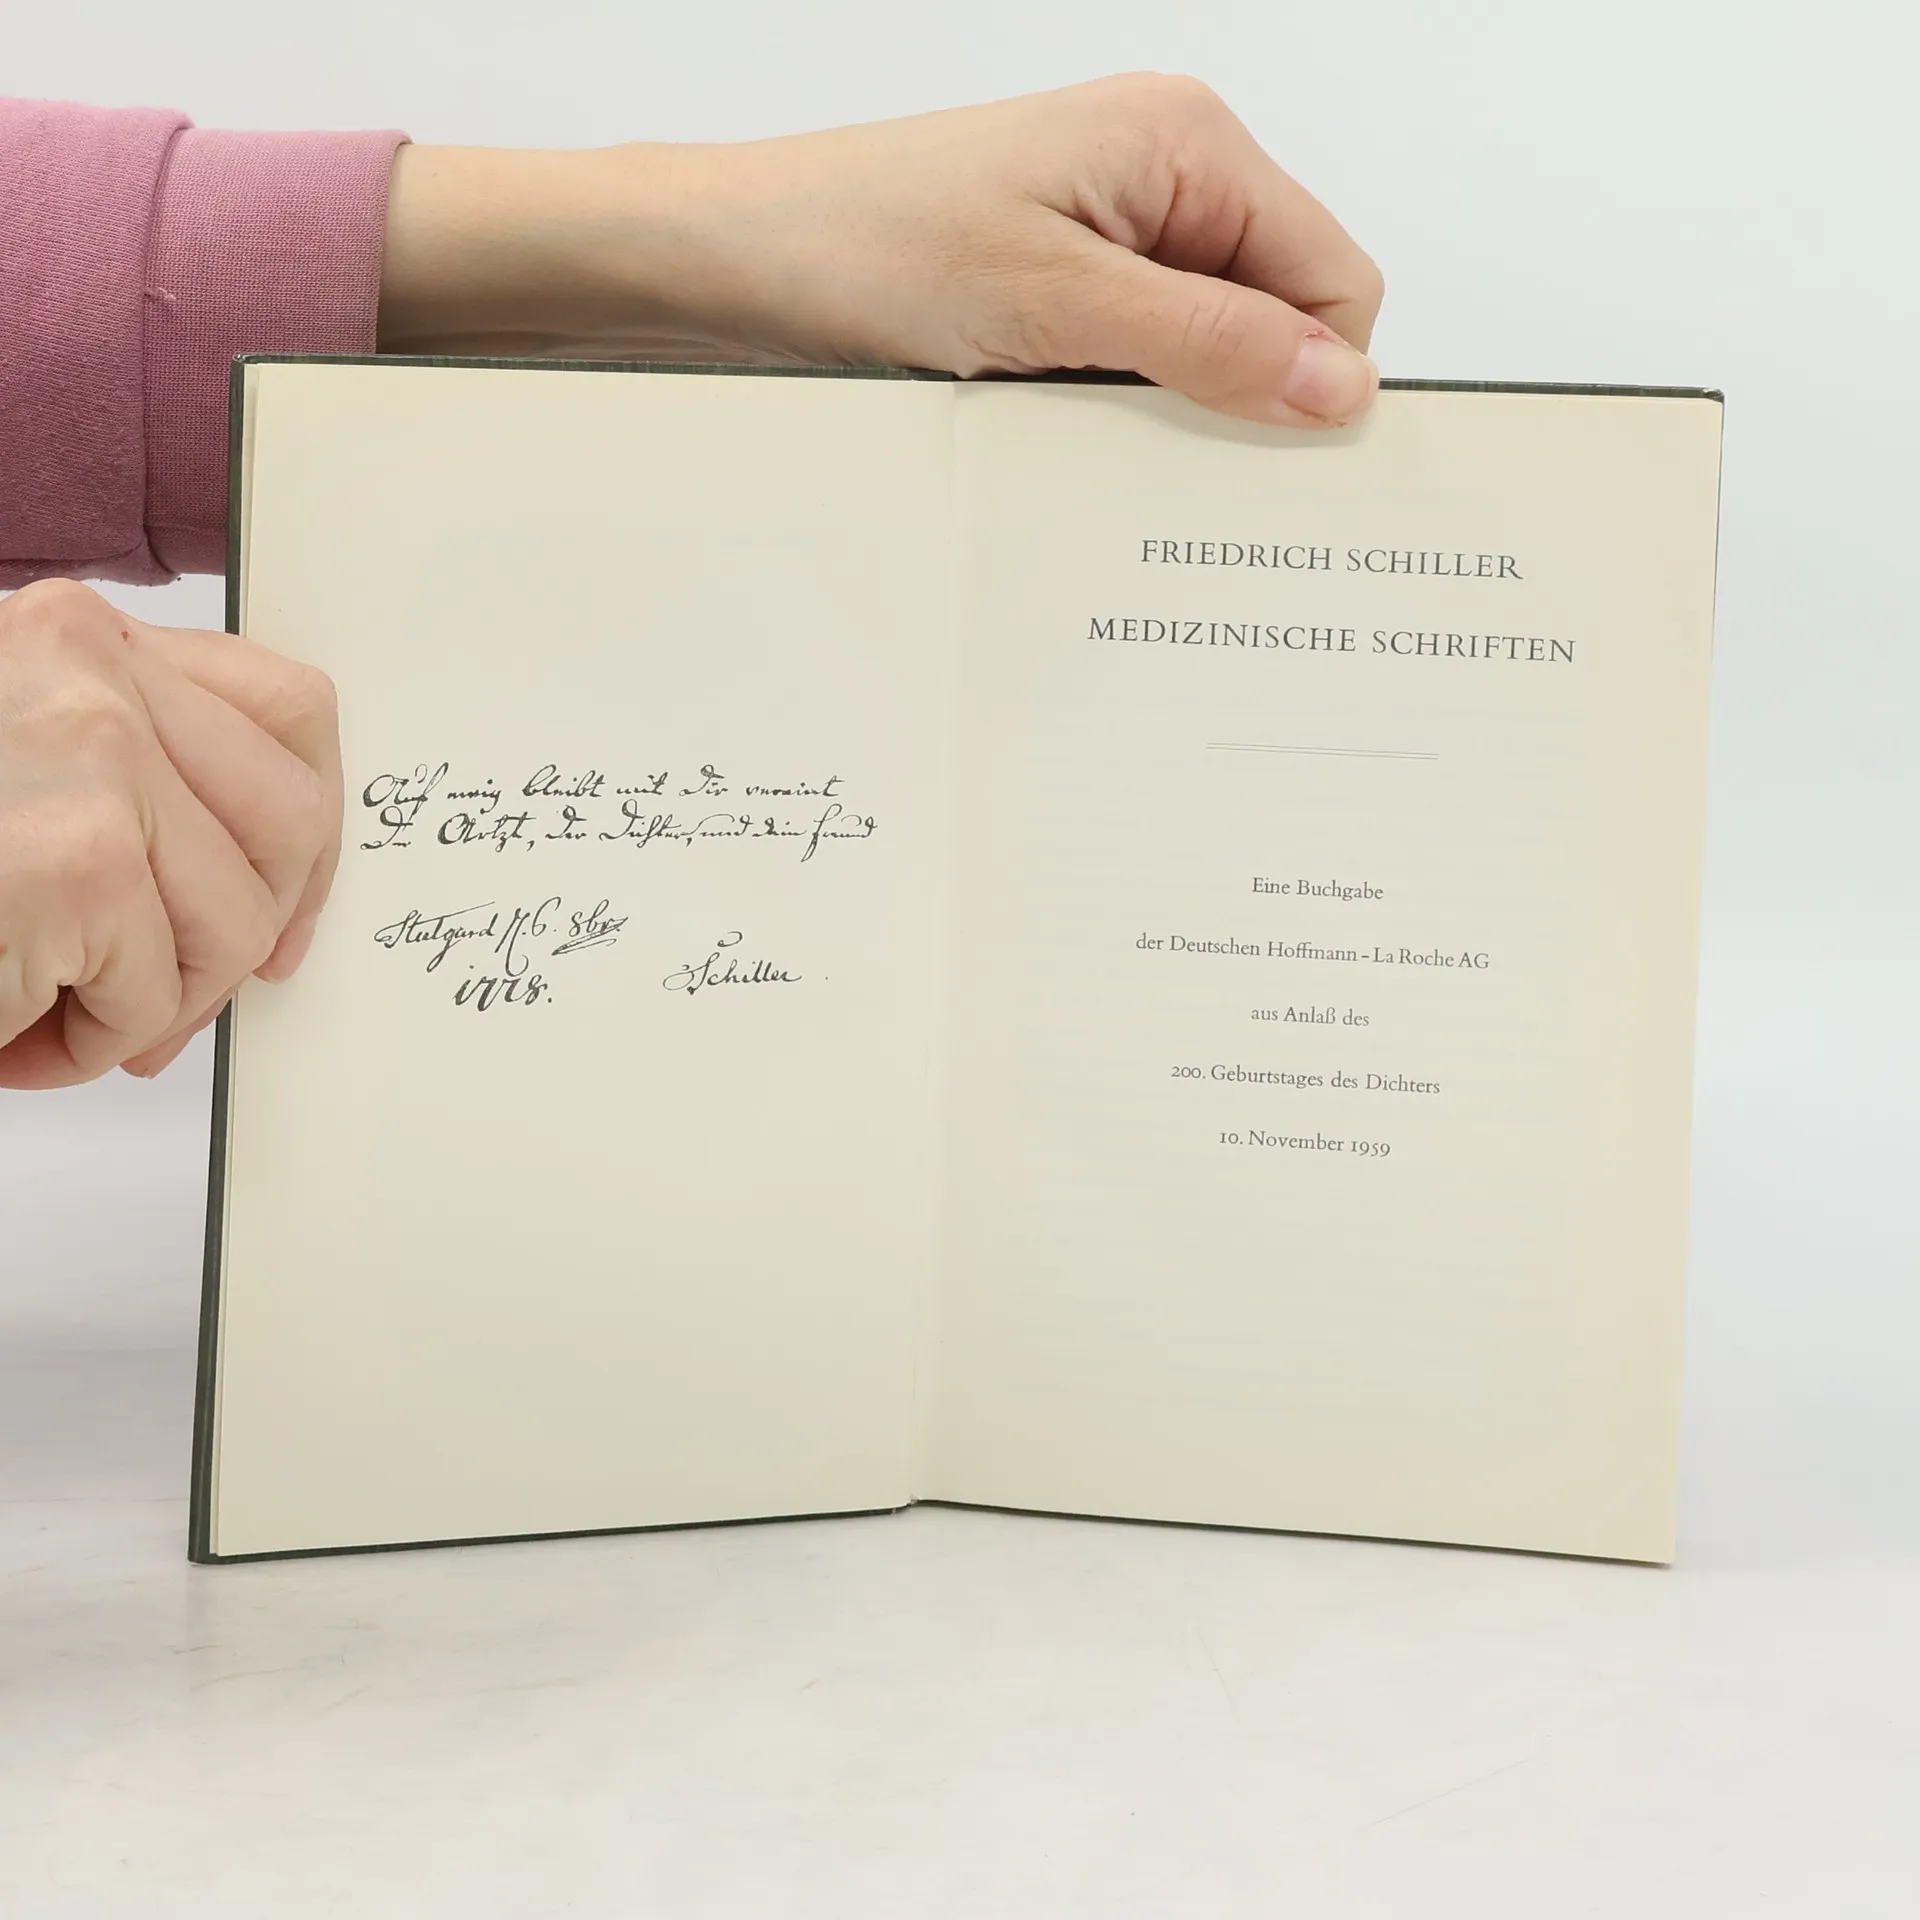 Auf ewig bleibt mit Dir vereint
Der Artzt, der Dichter, und dein Freund
Stutgard 6. 8br.
1778.
Schiller
FRIEDRICH SCHILLER
MEDIZINISCHE SCHRIFTEN
Eine Buchgabe
der Deutschen Hoffmann-La Roche AG
aus Anlaß des
200. Geburtstages des Dichters
10. November 1959